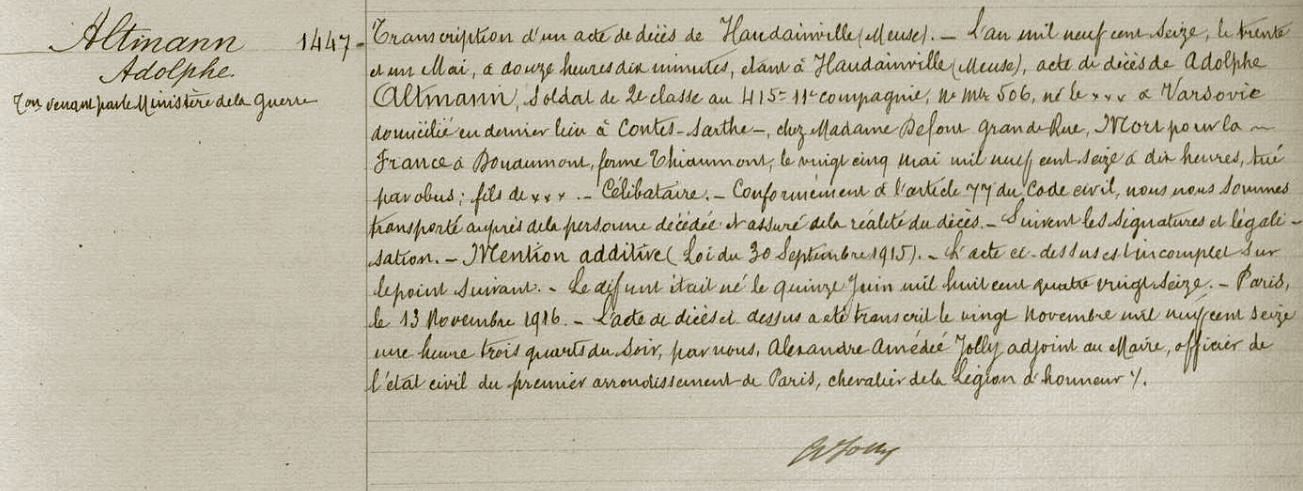 Altmann
Adolphe.
1447
Ton venant par le Ministère de la Guerre
Transcription d'un acte de décès de Haudainville (Meuse). — L'an mil neuf cent seize, le trente
et un Mai, à douze heures dix minutes, étant à Haudainville (Meuse), acte de décès de Adolphe
Altmann, Soldat de 2e classe au 415- 11e compagnie, No Mle 506, né le x x x à Varsovie
domicilié en dernier lieu à Contes-Sarthe-, chez Madame Defour Grande Rue, Mort pour la ~
France à Douaumont, ferme Thiaumont, le vingt cinq mai mil neuf cent seize à dix heures, tué
par obus; fils de x x x. - Célibataire. - Conformément à l'article 77 du Code civil, nous nous sommes
transporté auprès de la personne décédée et assuré de la réalité du décès. - Suivent les signatures et légali-
sation. - Mention additive (Loi du 30 Septembre 1915). - L'acte ci-dessus est incomplet sur
le point suivant. - Le défunt était né le quinze Juin mil huit cent quatre vingt seize. - Paris,
le 13 Novembre 1916. - L'acte de décès ci dessus a été transcrit le vingt novembre mil neuf cent seize
une heure trois quarts du soir, par nous, Alexandre Amédée Jolly adjoint au Maire, officier de
l'état civil du premier arrondissement de Paris, chevalier de la Légion d'honneur ./.
Jolly